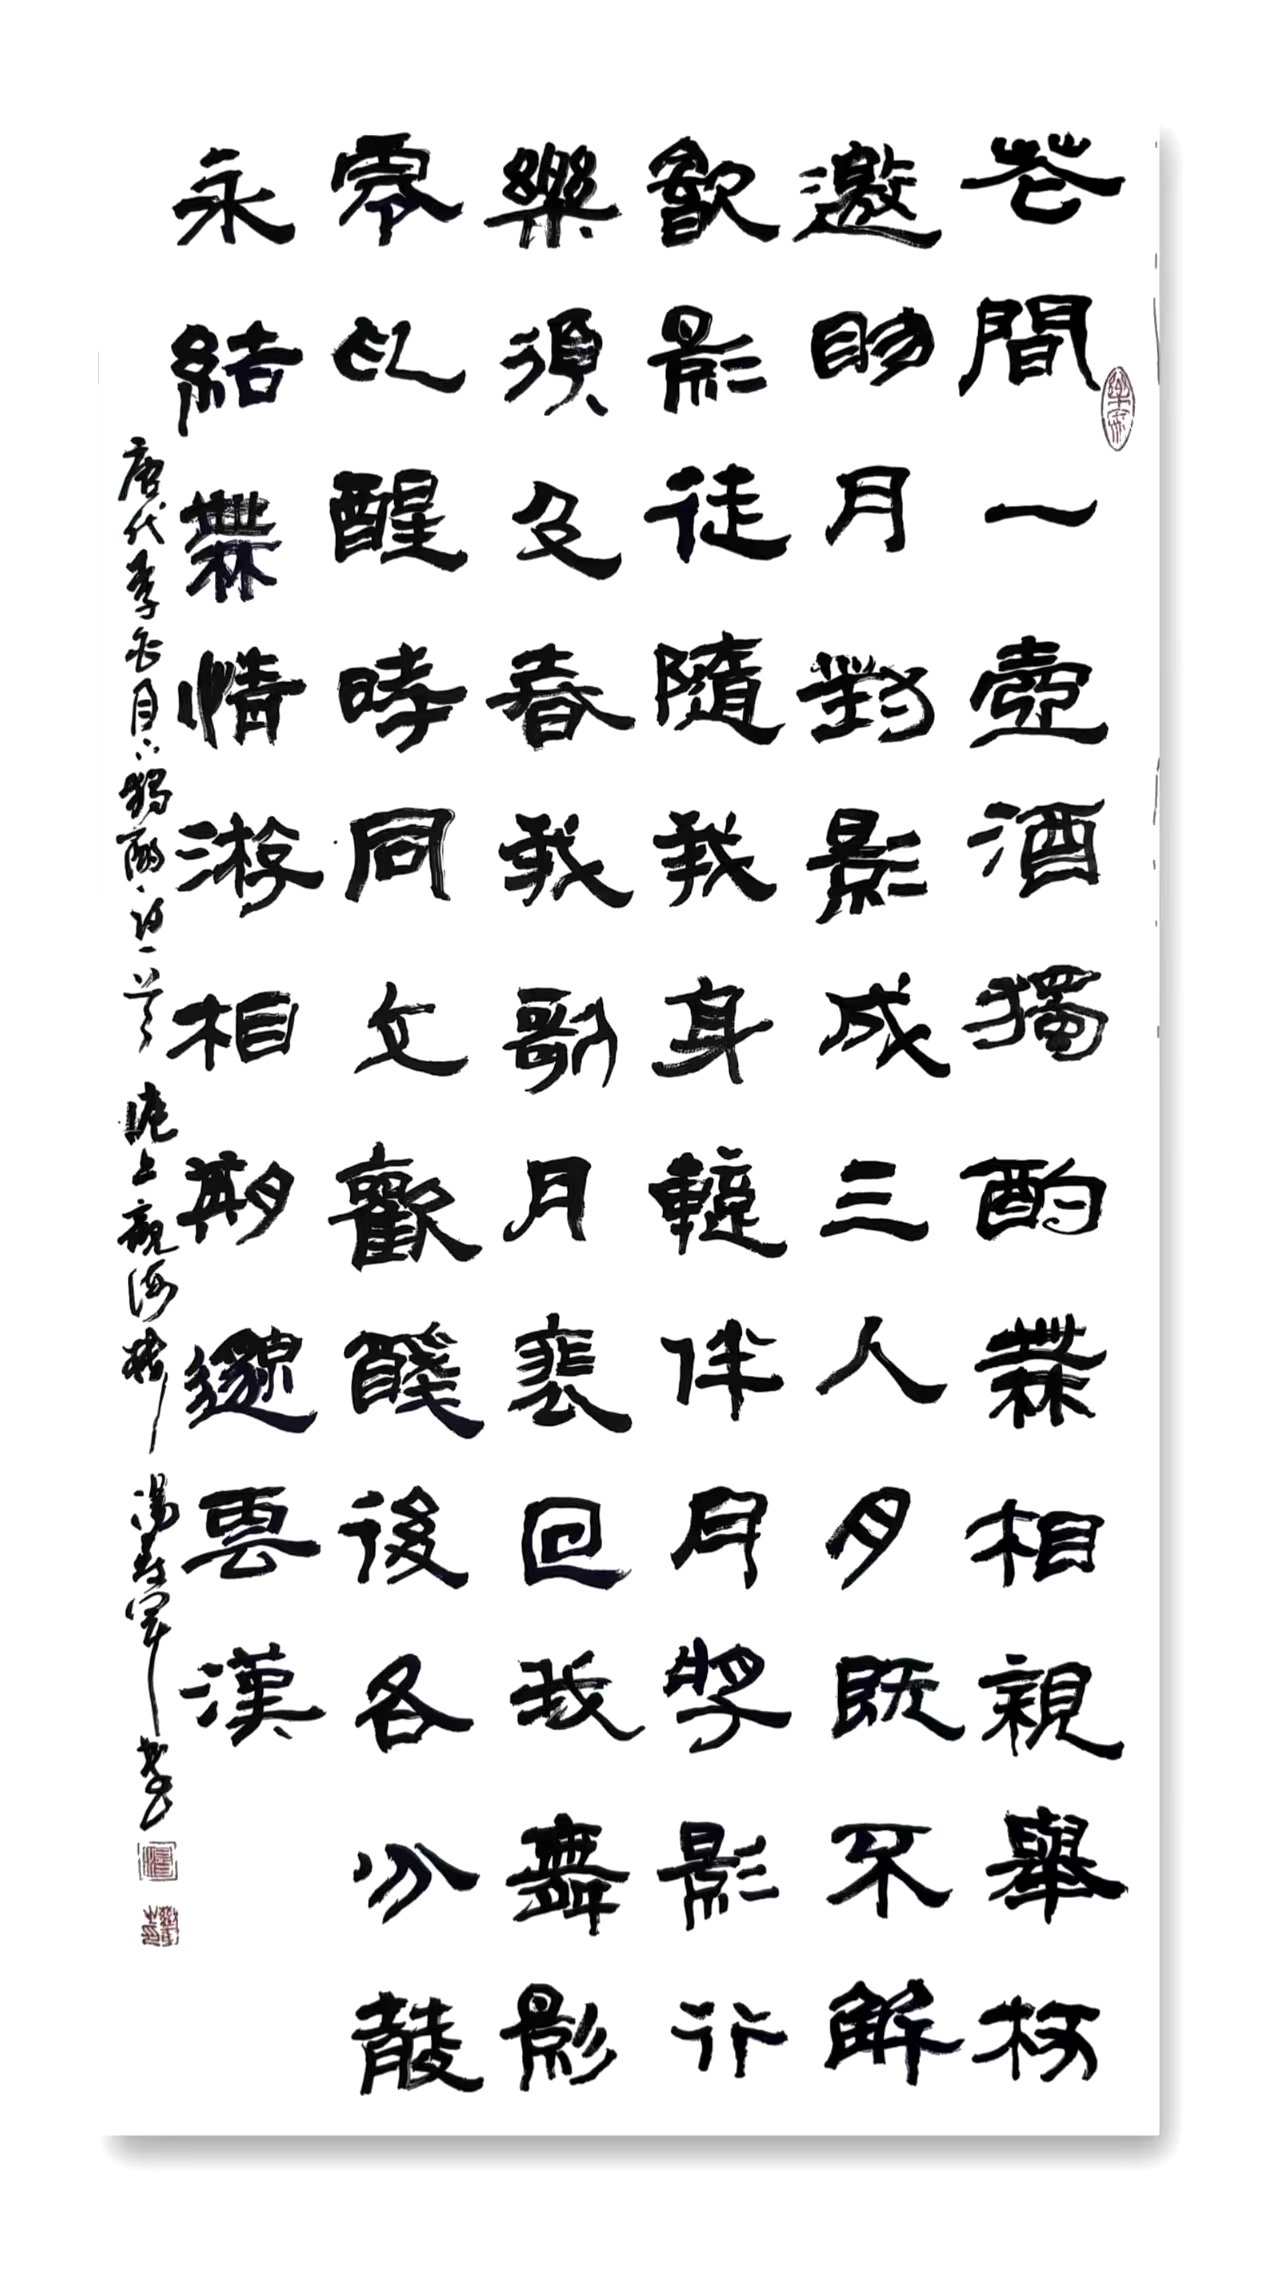 花間一壺酒獨酌無相親舉杯
邀眀月對影成三人月既不解
飲影徒隨我身暫伴月將影行
樂須及春我歌月裴回我舞影
零亂醒時同交歡醉後各分散
永結無情游相期邈雲漢
唐代李白月下獨酌詩一首 滬上觀海樓 湯軍書